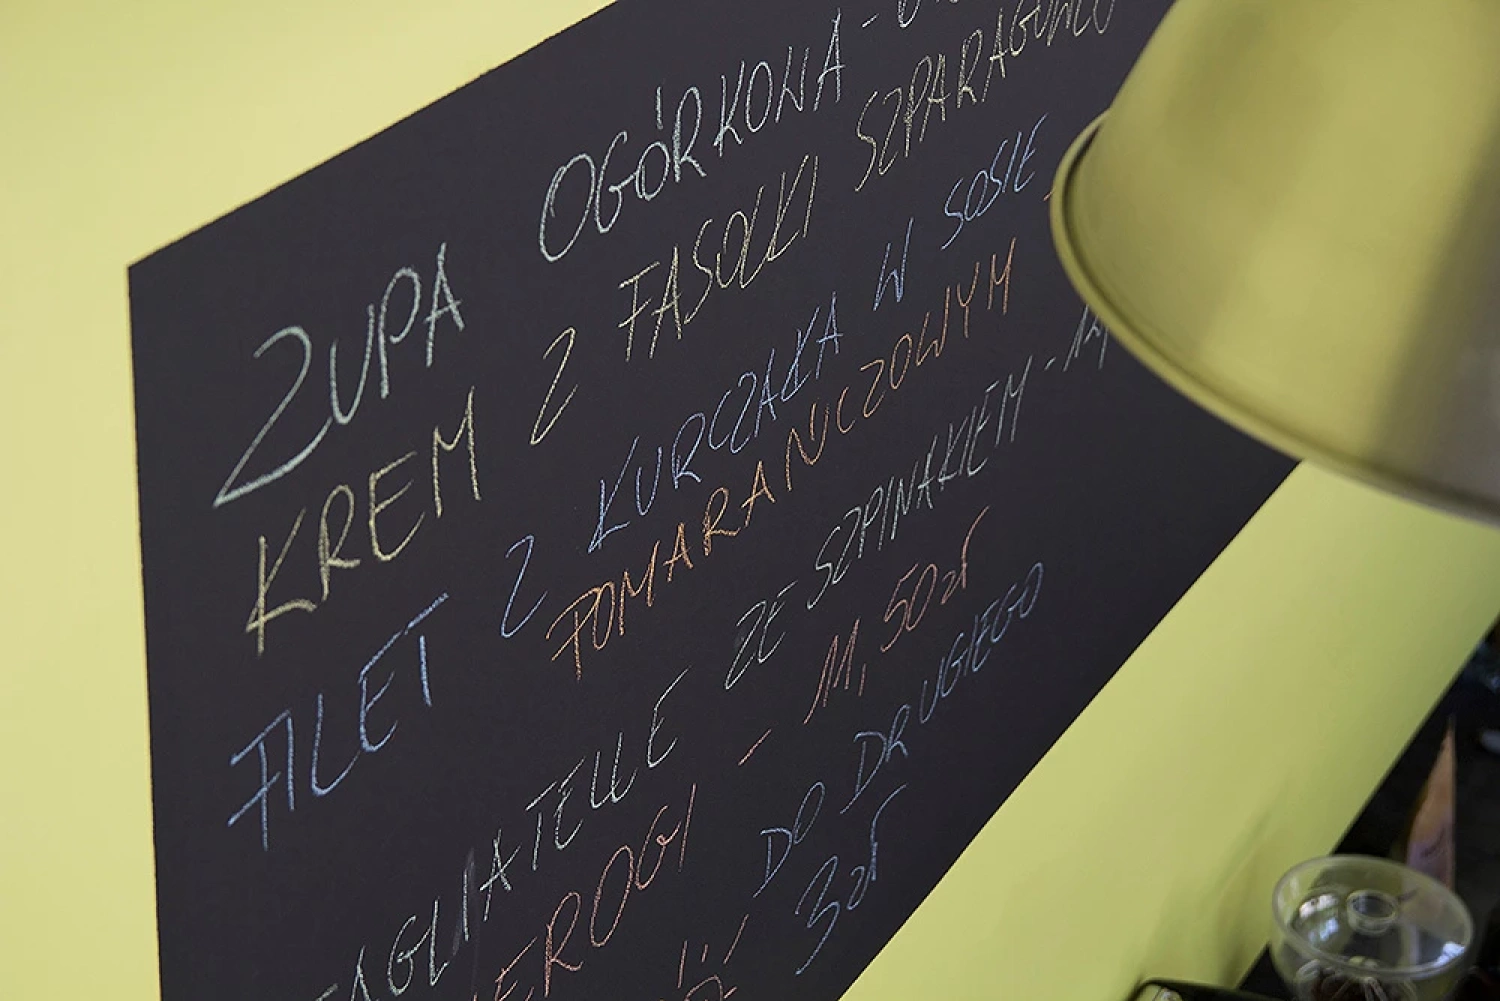 ZUPA OGÓRKOWA -
KREM Z FASOLKI SZPARAGOWEJ
FILET Z KURCZAKA W SOSIE
POMARAŃCZOWYM
TAGLIATELLE ZE SZPINAKIEM -
PIEROGI - 11,50 zł
DO DRUGIEGO
3 zł